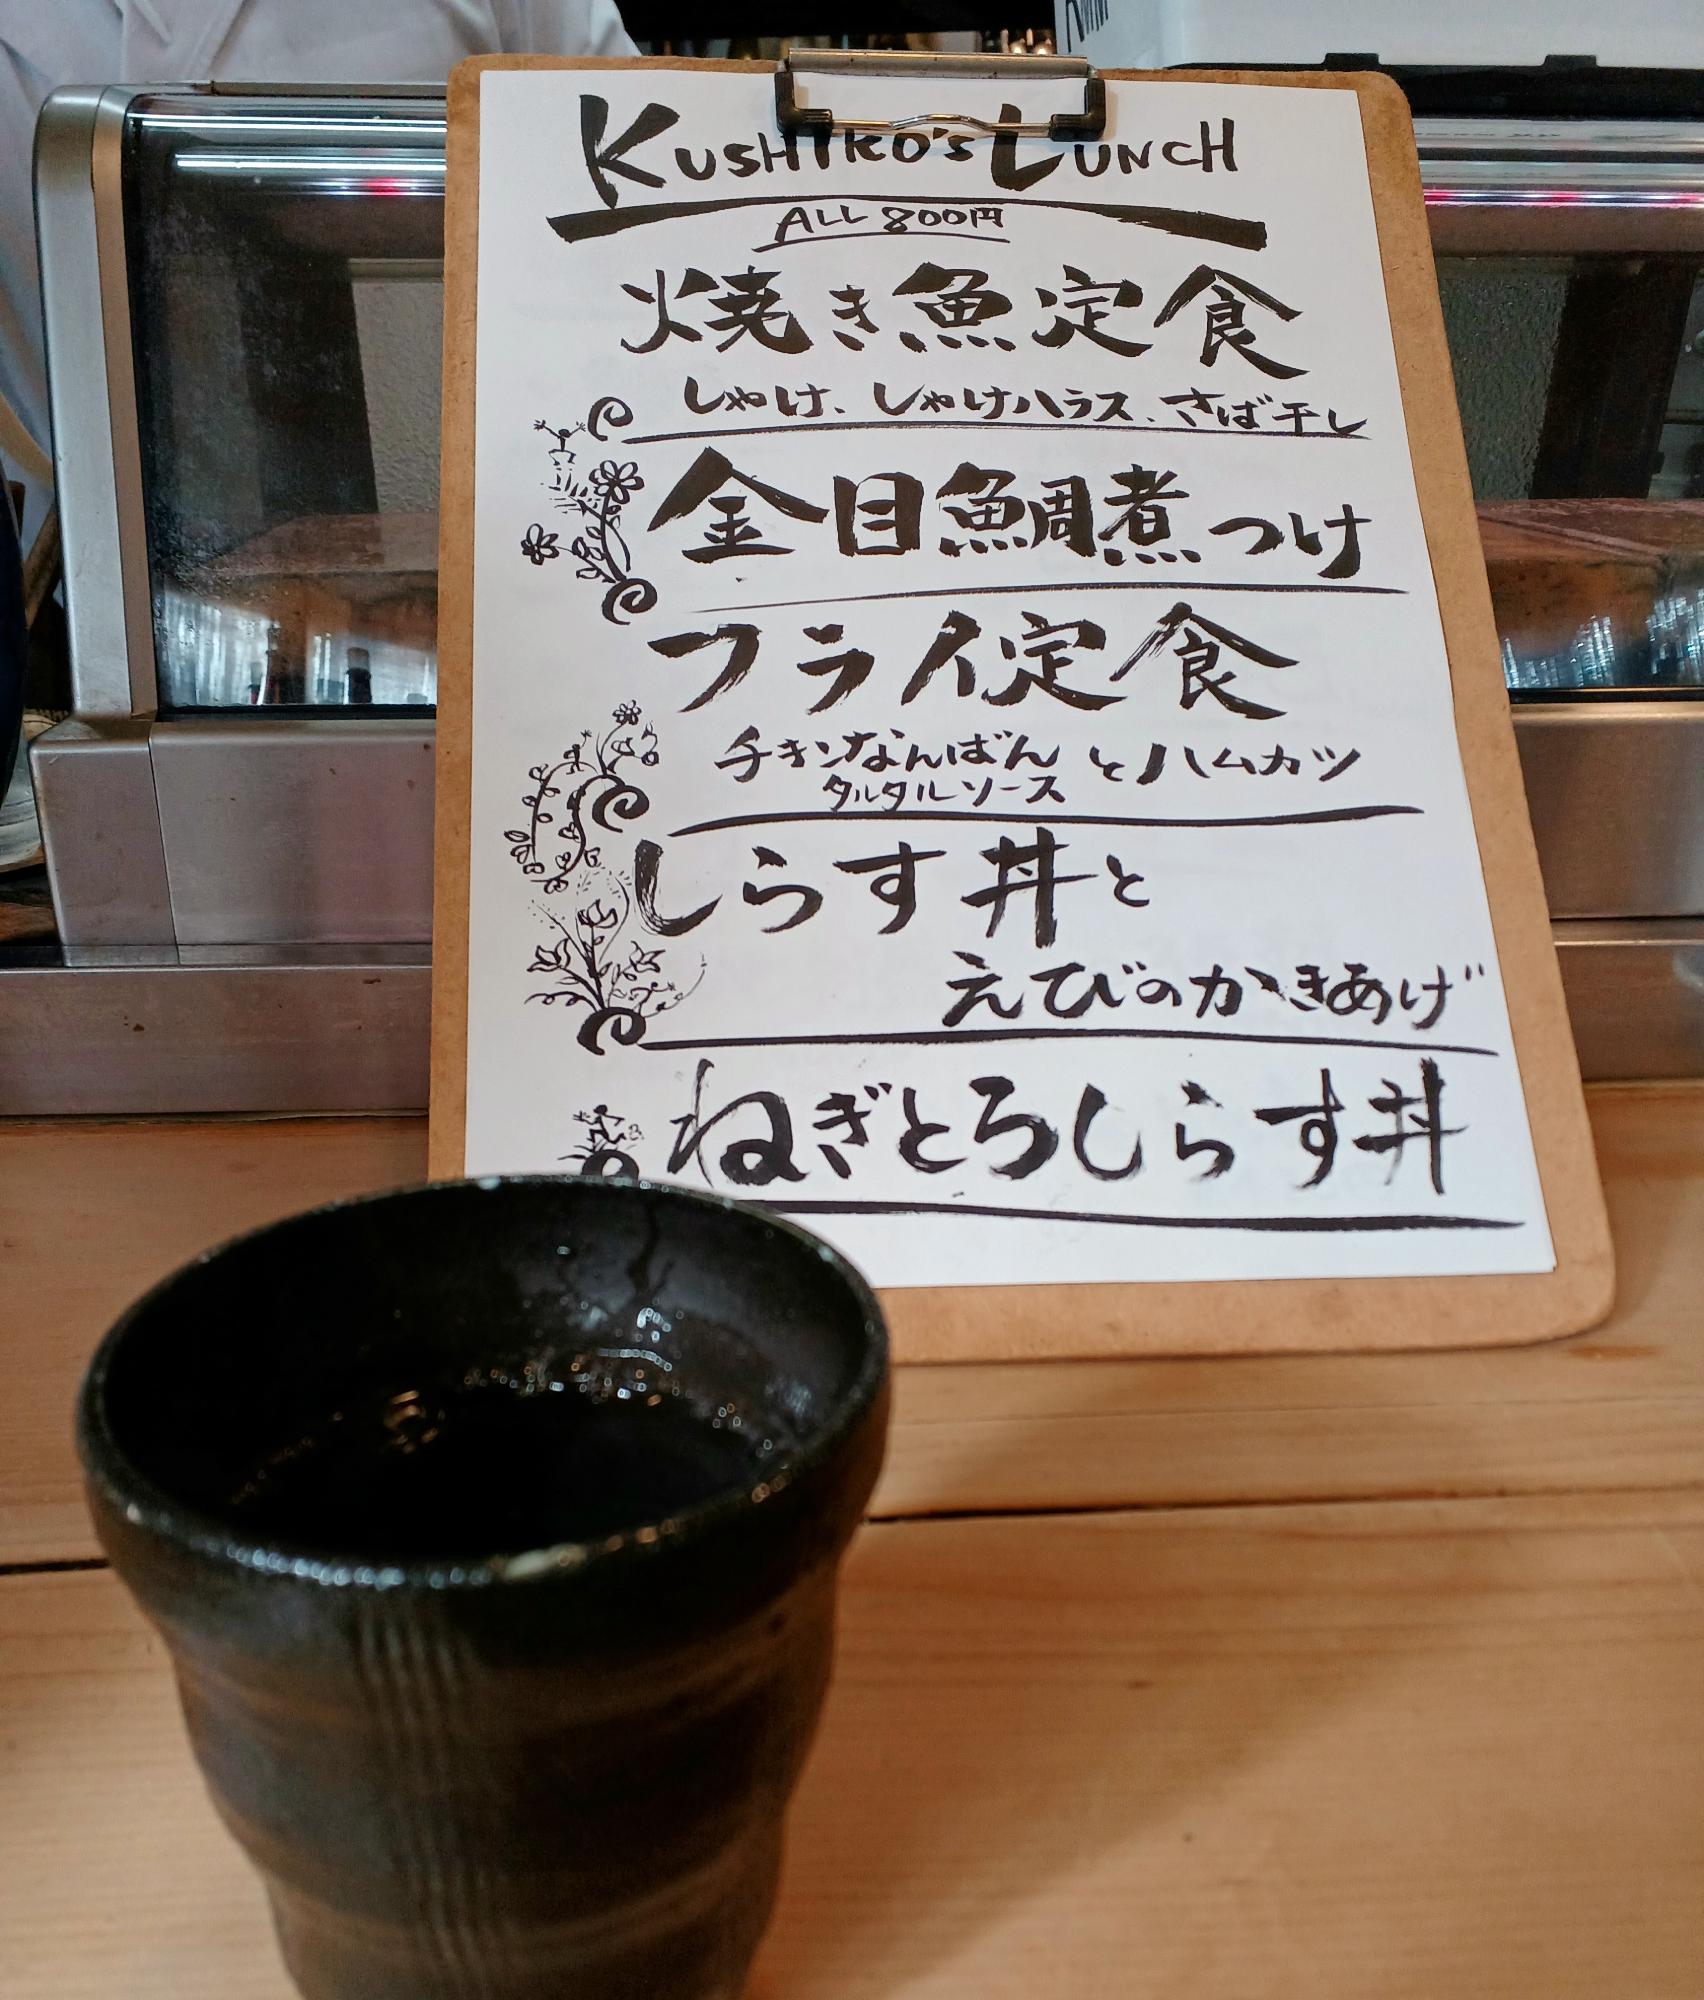 KUSHIKO'S LUNCH
ALL 800円
焼き魚定食
しゃけ、しゃけハラス、さば干し
金目鯛煮つけ
フライ定食
チキンなんばんとハムカツ
タルタルソース
しらす丼と
えびのかきあげ
ねぎとろしらす丼